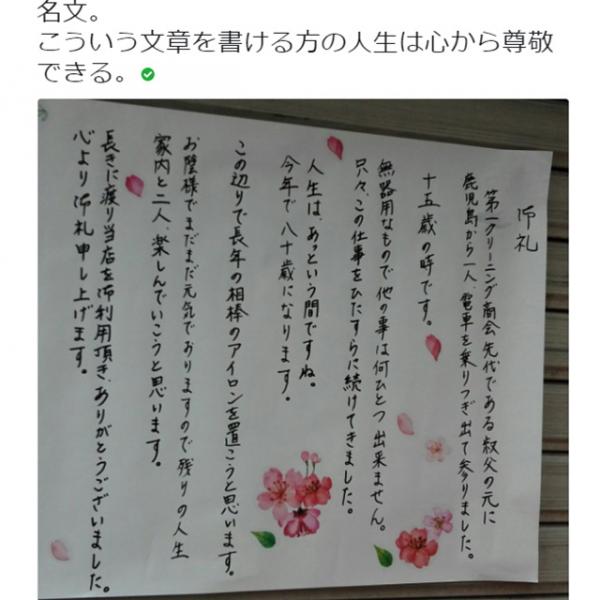 名文。
こういう文章を書ける方の人生は心から尊敬
できる。
御礼
第一クリーニング商会先代である叔父の元に
鹿児島から一人、電車を乗りつぎ出て参りました。
十五歳の時です。
無器用なもので他の事は何ひとつ出来ません。
只々、この仕事をひたすらに続けてきました。
人生は、あっという間ですね。
今年で八十歳になります。
この辺りで長年の相棒のアイロンを置こうと思います。
お陰様でまだまだ元気でおりますので残りの人生
家内と二人、楽しんでいこうと思います。
長きに渡り当店を御利用頂き、ありがとうございました。
心より御礼申し上げます。